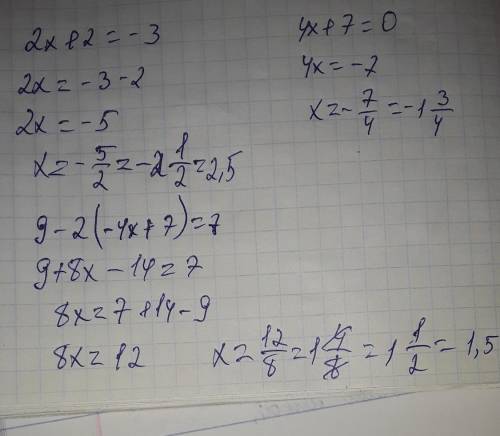 2x+2=-3
2x=-3-2
2x=-5
x=-5/2=-2 1/2=2,5
4x+7=0
4x=-7
x=-7/4=-1 3/4
9-2(-4x+7)=7
9+8x-14=7
8x=7+14-9
8x=12
x=12/8=1 4/8=1 1/2=1,5